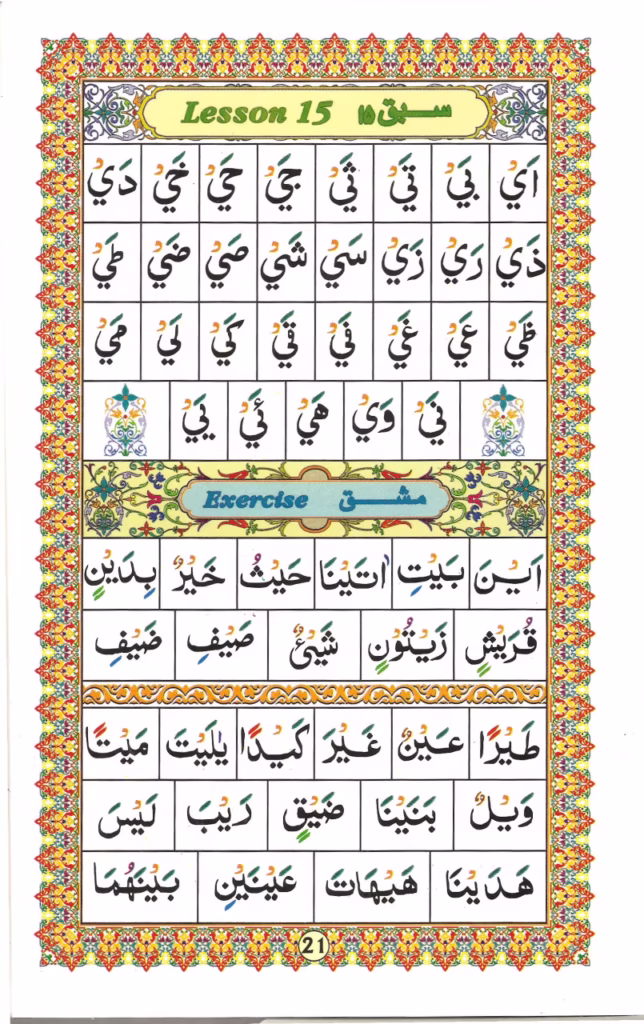 Lesson 15 سبق ۱۵
اَيْ بَيْ تَيْ ثَيْ جَيْ حَيْ خَيْ دَيْ
ذَيْ رَيْ زَيْ سَيْ شَيْ صَيْ ضَيْ طَيْ
ظَيْ عَيْ غَيْ فَيْ قَيْ كَيْ لَيْ مَيْ
نَيْ وَيْ هَيْ ئَيْ يَيْ
Exercise مشق
اَيْنَ بَيْتِ اٰتَيْنَا حَيْثُ خَيْرٌ بِدَيْنٍ
قُرَيْشٍ زَيْتُوْنٍ شَيْئٌ صَيْفِ ضَيْفِ
طَيْرًا عَيْنٌ غَيْرَ كَيْدًا يٰلَيْتَ مَيْتًا
وَيْلٌ بَنَيْنَا ضَيْقٍ رَيْبَ لَيْسَ
هَدَيْنَا هَيْهَاتَ عَيْنَيْنِ بَيْنَهُمَا
21